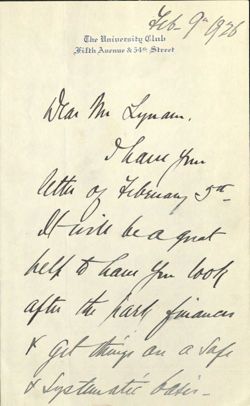 Feb- 9th 1926
The University Club
Fifth Avenue & 54th Street
Dear Mr Lynam.
I have your
letter of February 5th-
It will be a great
help to have you look
after the park finances
& get things on a safe
& systematic basis-